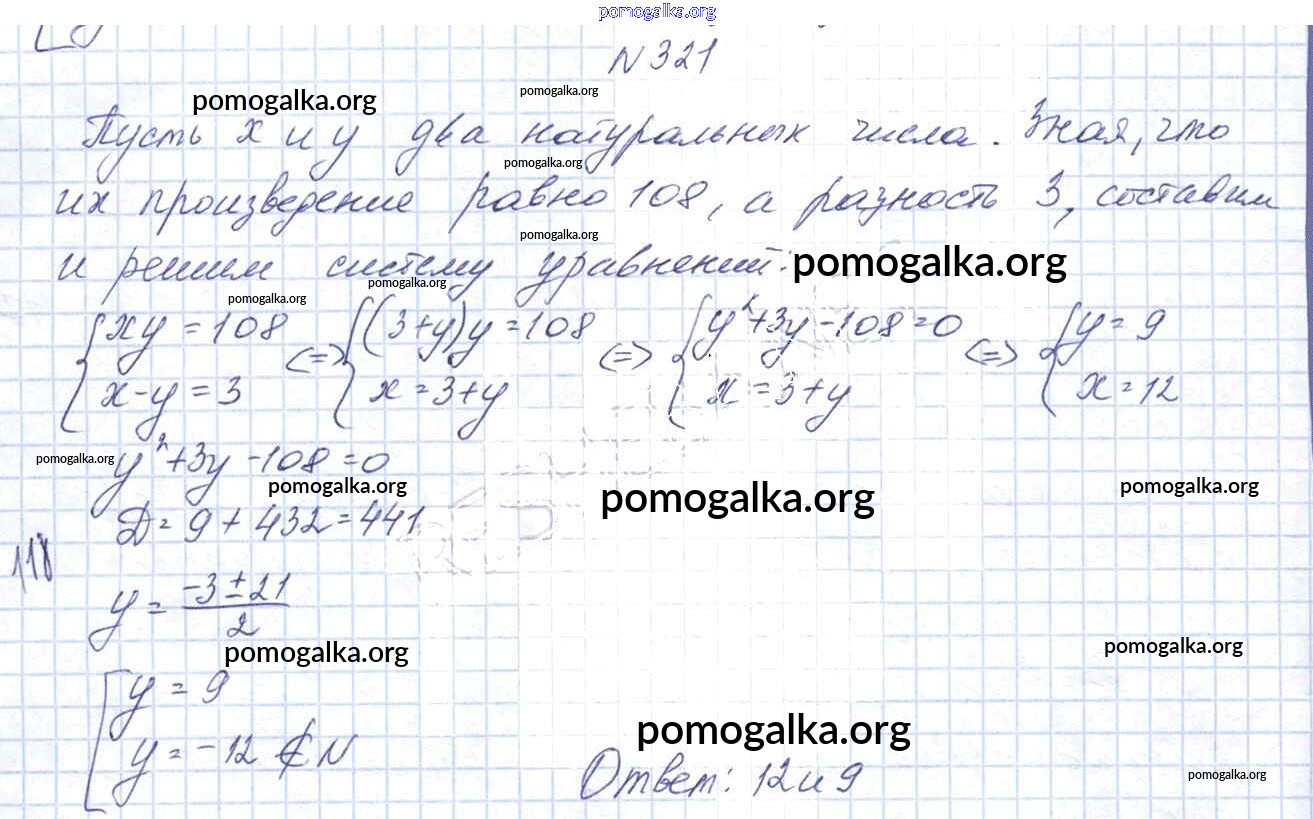 pomogalka.org
N 321
pomogalka.org
pomogalka.org
Пусть x и y два натуральных числа. Зная, что
pomogalka.org
их произведение равно 108, а разность 3, составим
pomogalka.org
и решим систему уравнений:
pomogalka.org
pomogalka.org
pomogalka.org
{xy = 108 <=> {(3+y)y = 108 <=> {y²+3y-108=0 <=> {y = 9
x-y = 3 x = 3+y x = 3+y x = 12
pomogalka.org
y²+3y-108=0
pomogalka.org
pomogalka.org
pomogalka.org
Д = 9 + 432 = 441
y = (-3 ± 21)/2
pomogalka.org
pomogalka.org
[y = 9
y = -12 ∉ N
pomogalka.org
Ответ: 12 и 9
pomogalka.org